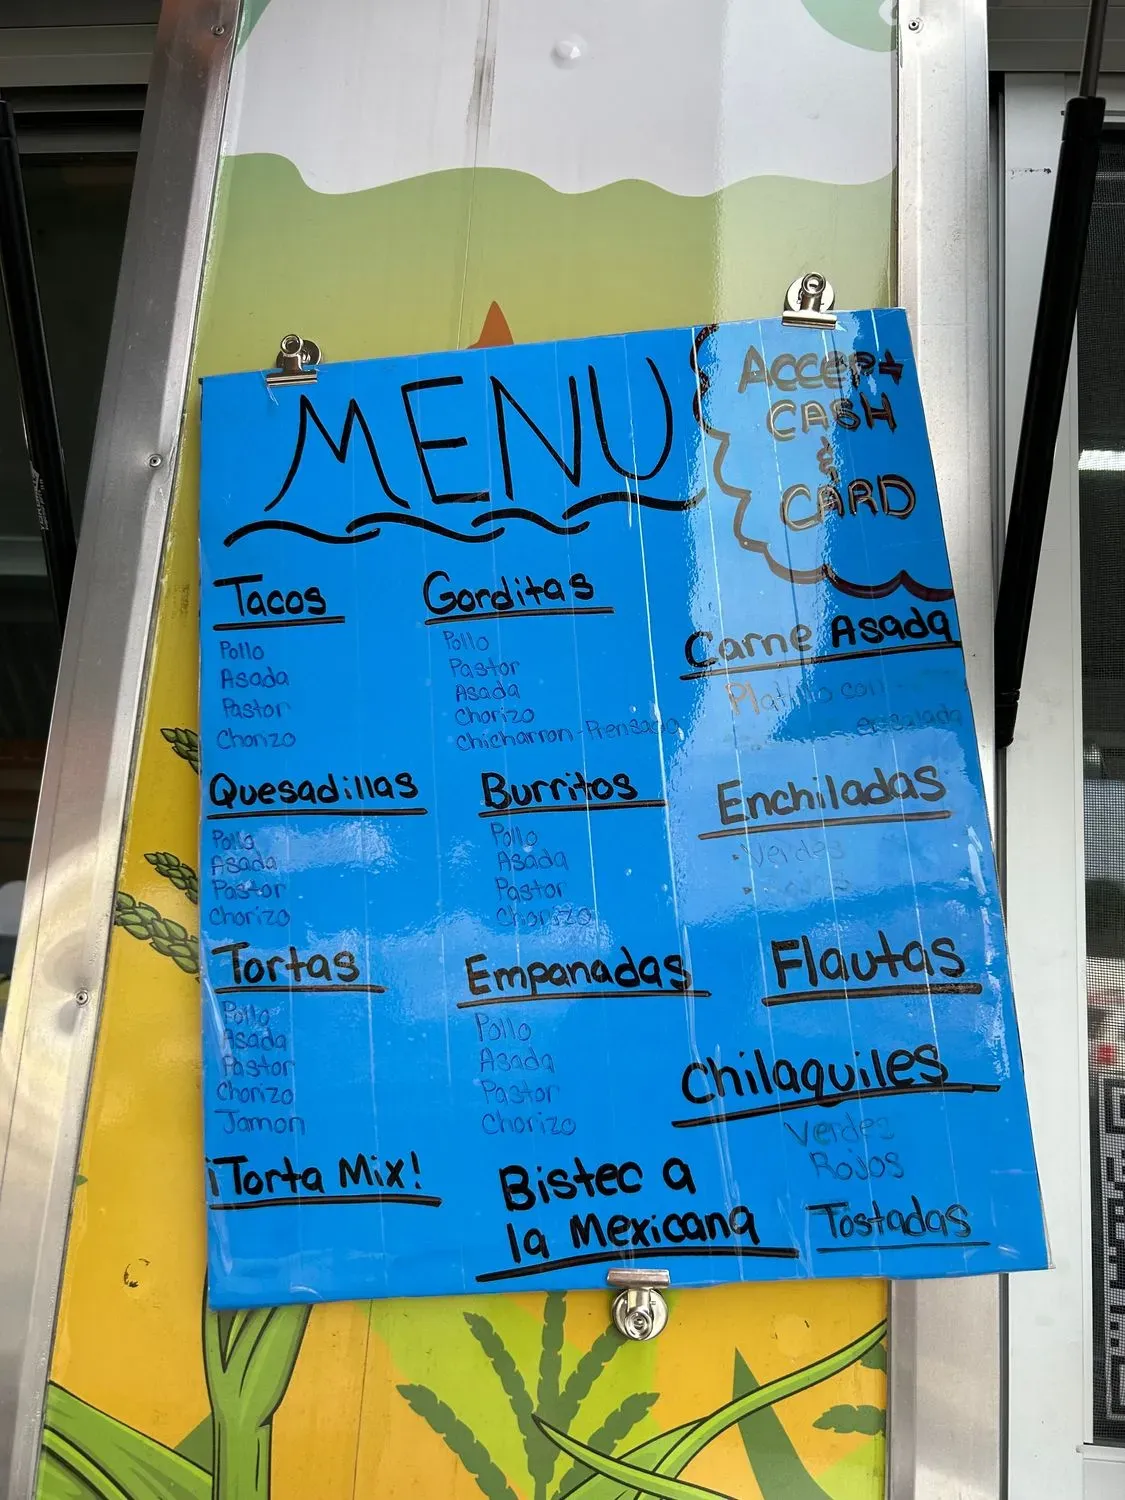 MENU
ACCEPt
CASH
&
CARD
Tacos
Pollo
Asada
Pastor
Chorizo
Gorditas
Pollo
Pastor
Asada
Chorizo
Chicharron-Prensado
Carne Asada
Platillo con
ensalada
Quesadillas
Pollo
Asada
Pastor
Chorizo
Burritos
Pollo
Asada
Pastor
Chorizo
Enchiladas
-Verdes
Tortas
Pollo
Asada
Pastor
Chorizo
Jamon
¡Torta Mix!
Empanadas
Pollo
Asada
Pastor
Chorizo
Bistec a
la Mexicana
Flautas
Chilaquiles
Verdes
Rojos
Tostadas